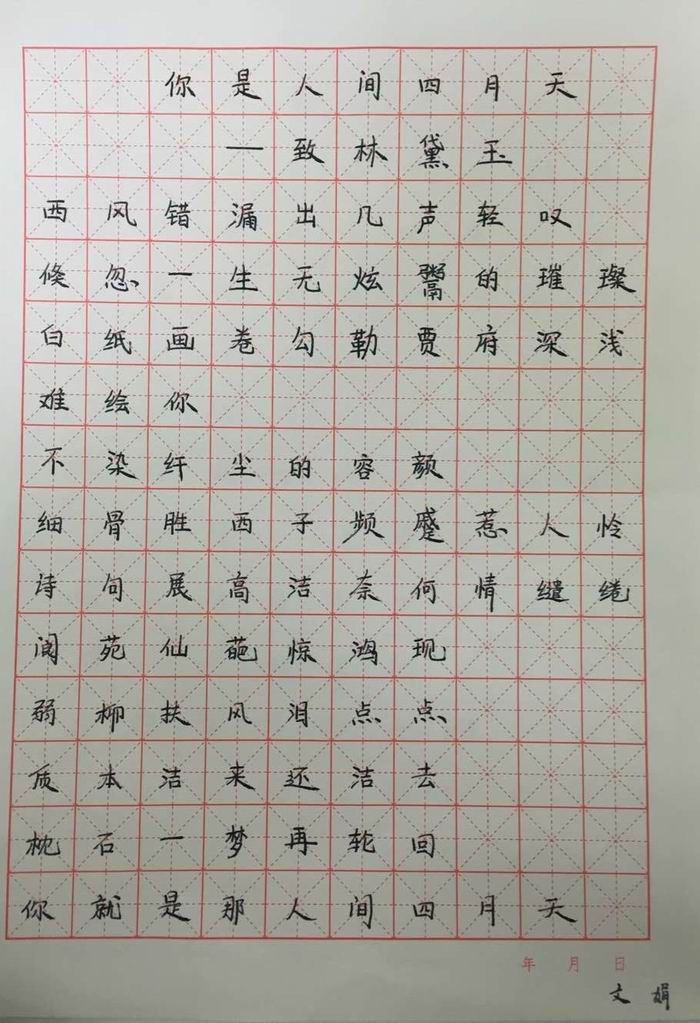 你是人间四月天
——致林黛玉
西风错漏出几声轻叹
倏忽一生无炫鬻的璀璨
白纸画卷勾勒贾府深浅
难绘你
不染纤尘的容颜
细骨胜西子频蹙惹人怜
诗句展高洁奈何情缱绻
阆苑仙葩惊鸿现
弱柳扶风泪点点
质本洁来还洁去
枕石一梦再轮回
你就是那人间四月天
年 月 日
文娟